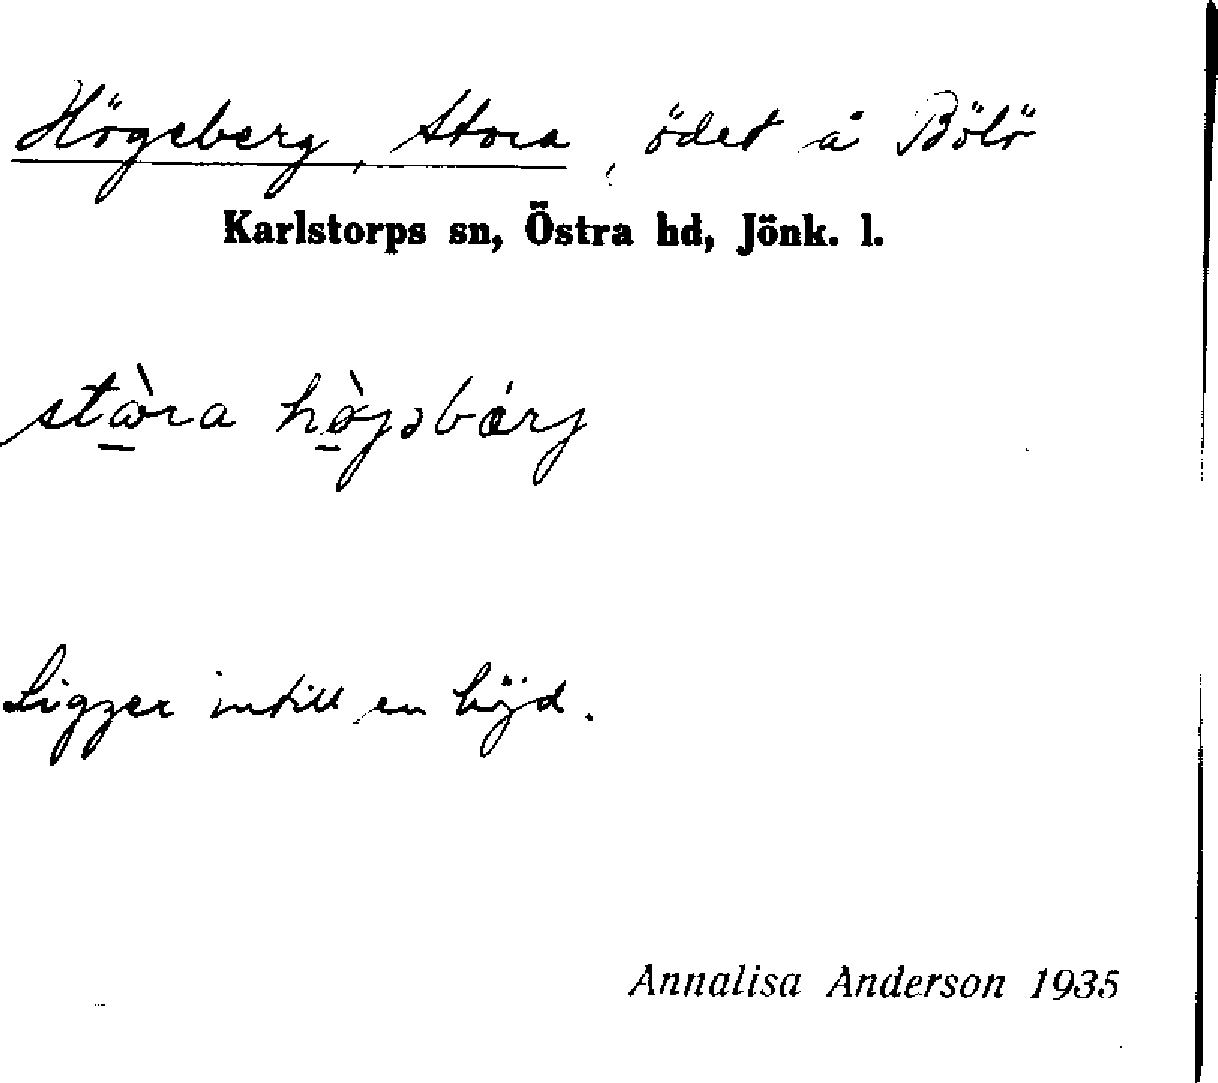 Högeberg, Stora, ödet å Bölö
Karlstorps sn, Östra hd, Jönk. l.
Ligger intill en höjd.
Annalisa Anderson 1935